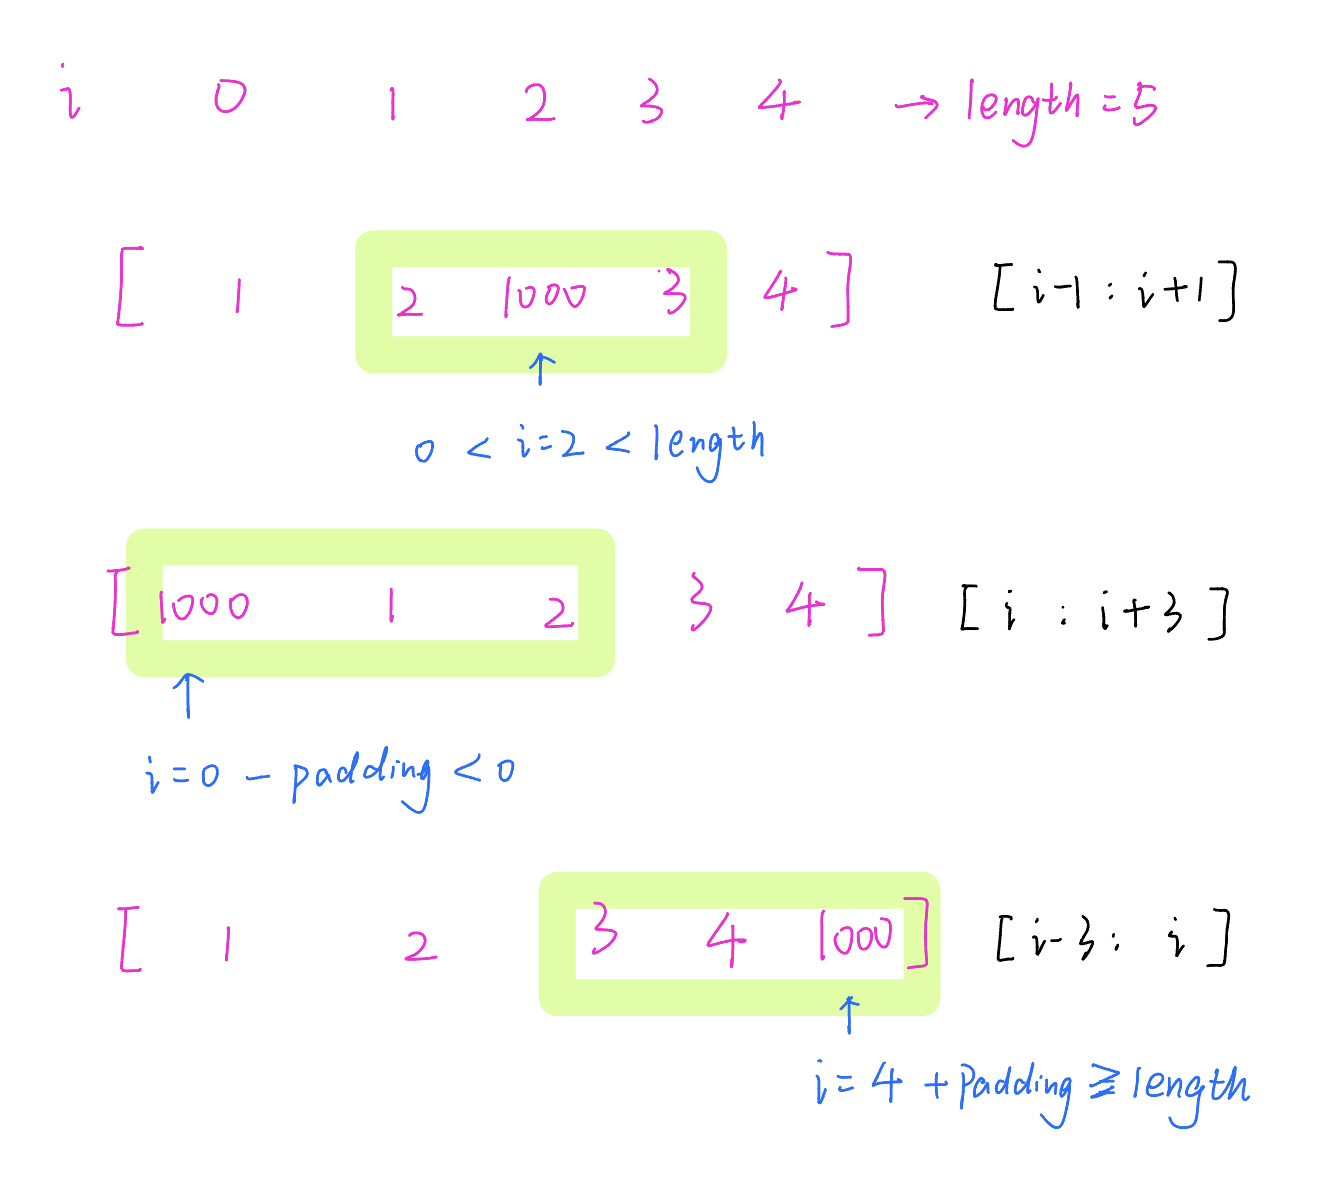 i 0 1 2 3 4 → length = 5
[ 1 2 1000 3 4 ] [ i-1 : i+1 ]
↑
0 < i=2 < length
[ 1000 1 2 3 4 ] [ i : i+3 ]
↑
i=0 - padding < 0
[ 1 2 3 4 1000 ] [ i-3 : i ]
↑
i= 4 + padding ≧ length